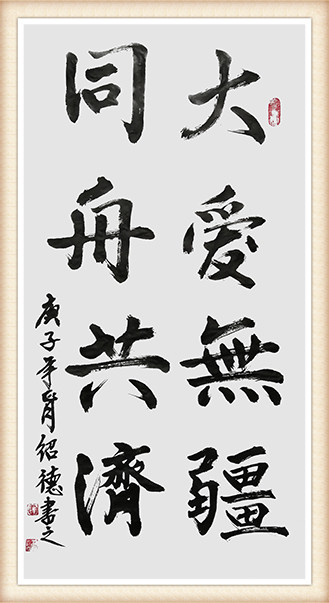 大愛無疆
同舟共濟
庚子年肖绍德書之